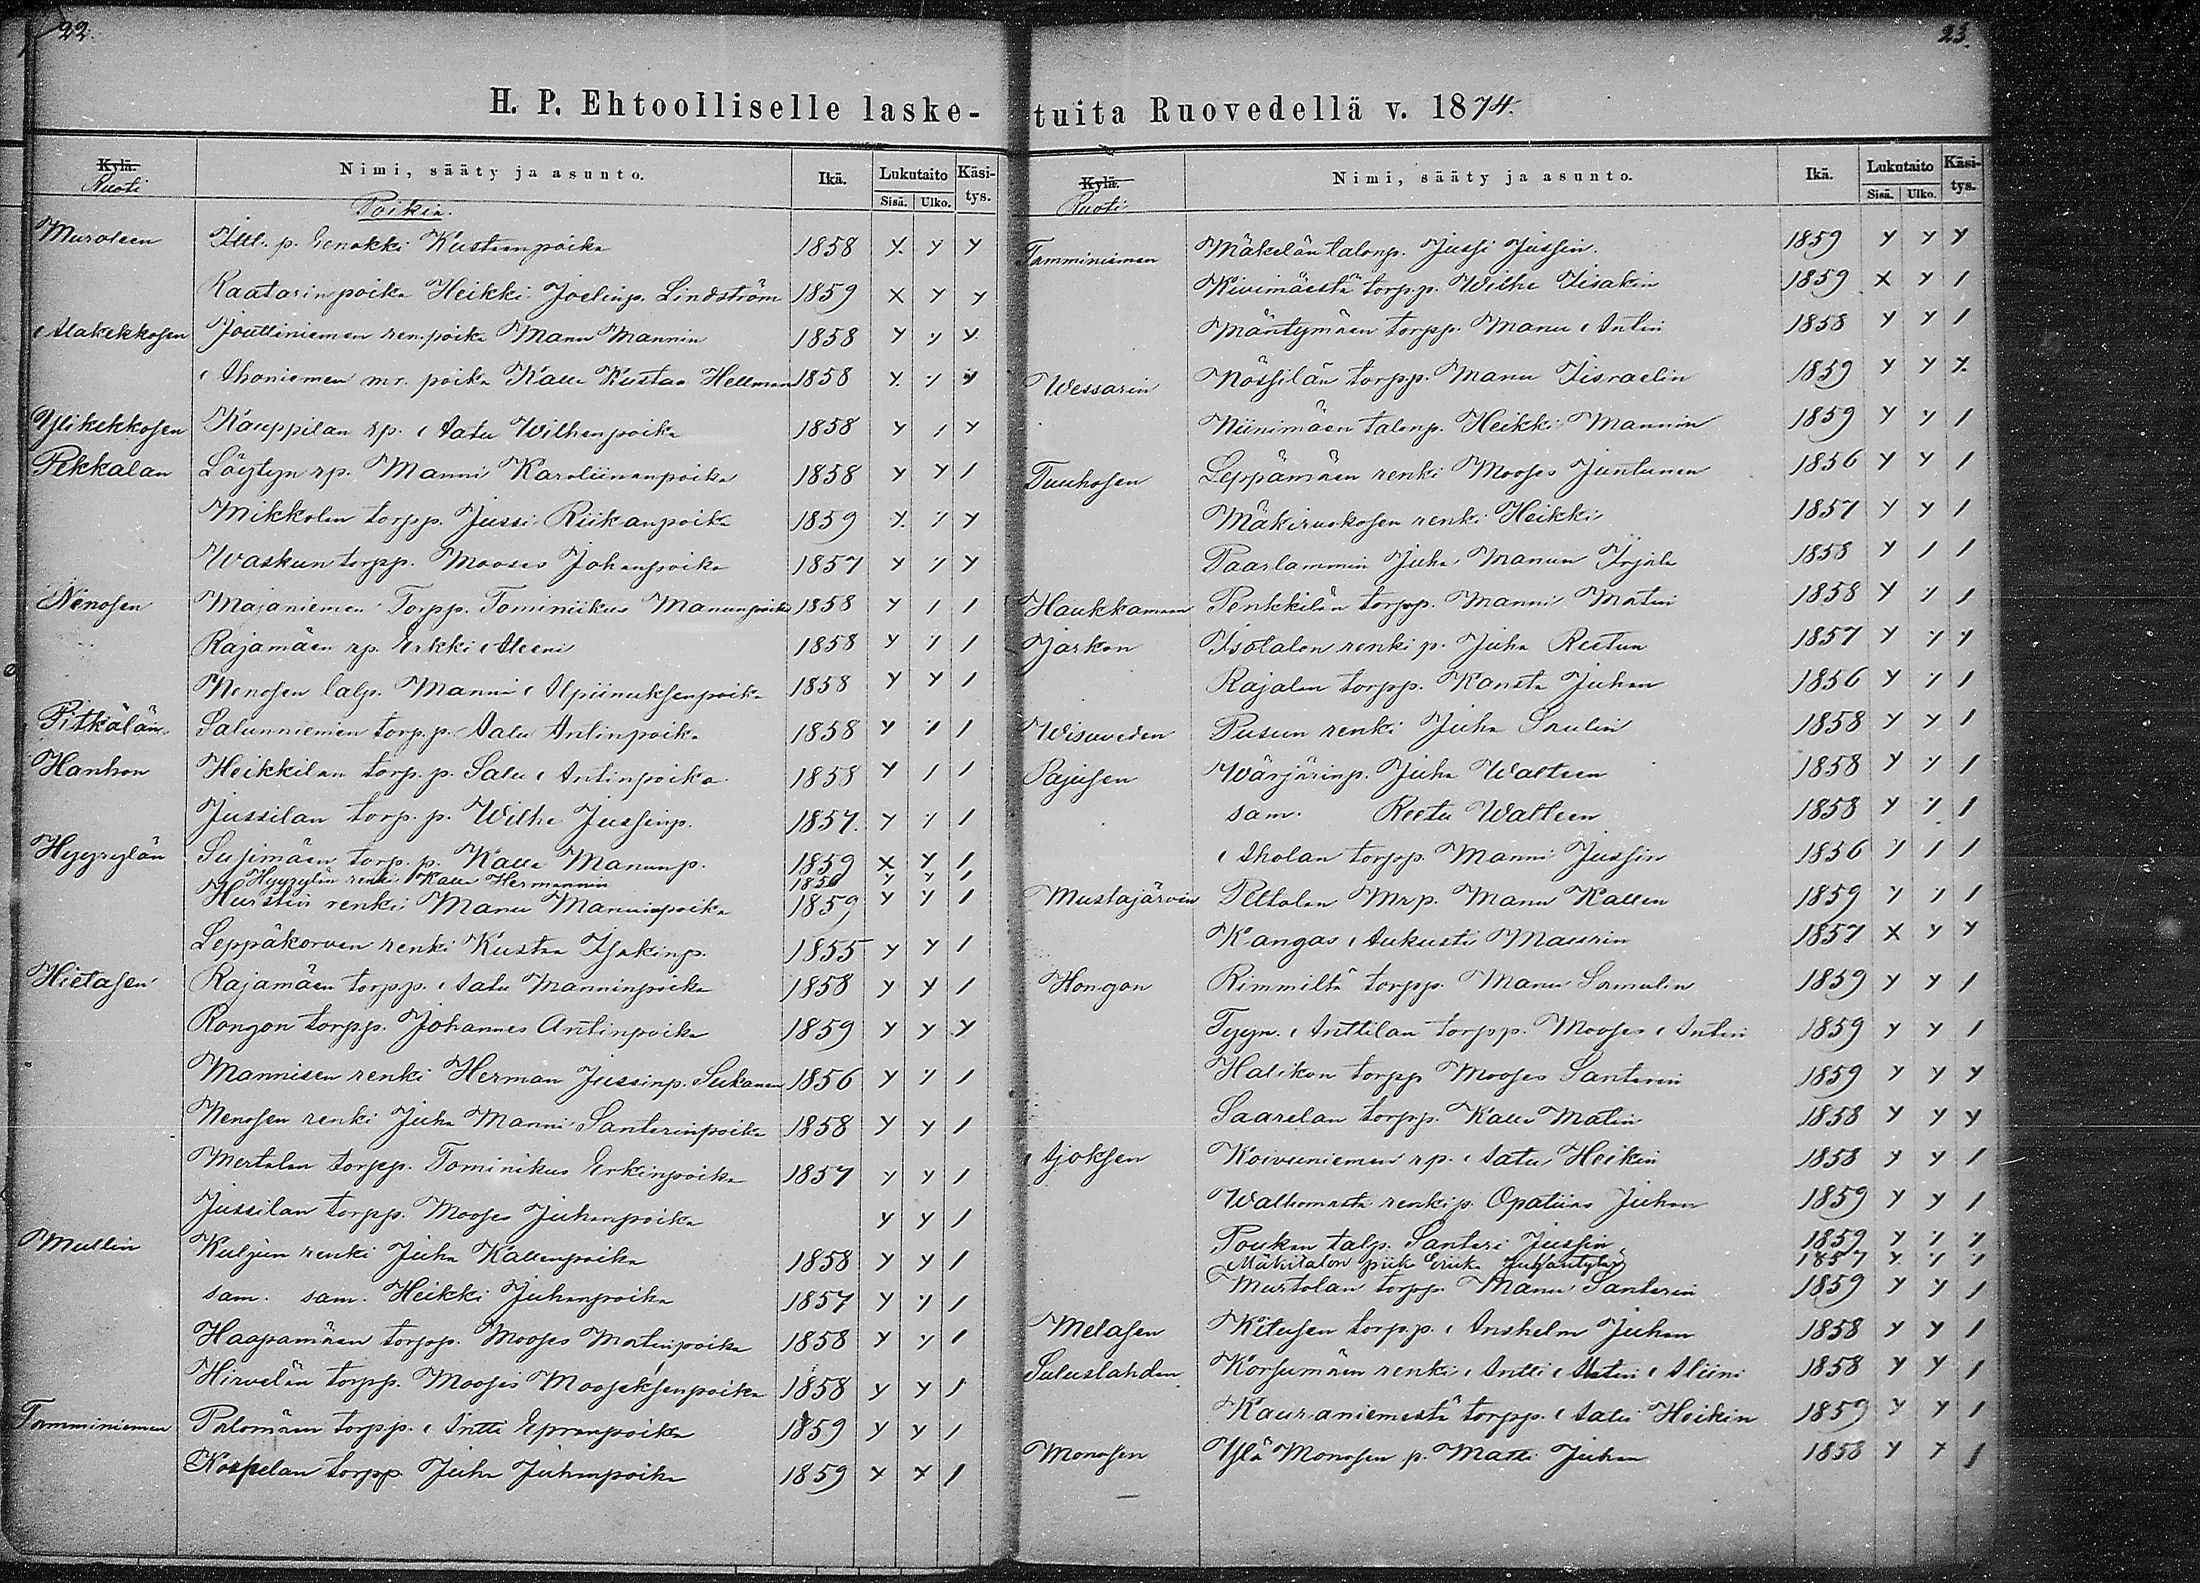 22.
H. P. Ehtoolliselle laske-
Kylä. Nimi, sääty ja asunto. Ikä. Lukutaito Käsi-
Ruoti Sisä. Ulko. tys.
Poikia.
Muroleen p. Eenokki Kustaanpoika 1858 y. y y
Raatarinpoika Heikki Joelinp. Lindström 1859 x y y
Alakekkosen Jouttiniemen ren.poika Manu Mannin 1858 y ./ y
Ahoniemen mr. poika Kalle Kustaa Hellman 1858 y. ./ y
Ylikekkosen Kauppilan rp. Aatu Wilhenpoika 1858 y / y
Pekkalan Löytyn rp. Manni Karoliinanpoika 1858 y y /
Mikkolan torpp. Jussi Riikanpoika 1859 y. ./ y
Waskun torpp. Mooses Johanpoika 1857 y ./ y
Nenosen Majaniemen Torpp. Tominiikus Manunpoika 1858 y / /
Rajamäen rp. Erkki Aleeni 1858 y ./ /
Nenosen talp. Manni Alpiinuksenpoika 1858 y y /
Pitkälän Salunniemen torp.p. Aatu Antinpoika 1858 y ./ /
Hanhon Heikkilan torp. p. Salu Antinpoika 1858 y / /
Jussilan torp. p. Wilhe Jussinp. 1857. y ./ /
Hyyrylän Susimäen torp. p. Kalle Manunp. 1859 x y /
Hyyrylän renki Kalle Hermannin 1856 y y /
Hurstin renki Manu Manninpoika 1859 y ./ /
Leppäkorven renki Kustaa Isakinp. 1855 y y /
Hietasen Rajamäen torpp. Aatu Manninpoika 1858 y y /
Rongon torpp. Johannes Antinpoika 1859 y y y
Mannisen renki Herman Jussinp. Sukanen 1856 y ./ /
Nenosen renki Juha Manni Santerinpoika 1858 y y /
Mertalan torpp. Tominikus Erkinpoika 1857 y y /
Jussilan torpp. Mooses Juhanpoika y y /
Mullin Kuljun renki Juha Kallenpoika 1858 y y /
sam. sam. Heikki Juhanpoika 1857 y ./ /
Haapamäen torpp. Mooses Matinpoika 1858 y ./ /
Hirvelän torpp. Mooses Mooseksenpoika 1858 y y /
Tamminiemen Palomäen torpp. Antti Epranpoika 1859 y y /
Korpelan torpp. Juha Juhanpoika 1859 x x /
23.
tuita Ruovedellä v. 1874.
Kylä. Nimi, sääty ja asunto. Ikä. Lukutaito Käsi-
Ruoti Sisä. Ulko. tys.
Tamminiemen Mäkelän talonp. Jussi Jussin. 1859 y y y
Kivimäestä torp.p. Wilhe Iisakin 1859 x y /
Mäntymäen torpp. Manu Antin 1858 y y /
Wessarin Nössilän torpp. Manu Iisraelin 1859 y y y.
Niinimäen talonp. Heikki Mannin 1859 y y /
Tuuhosen Leppämäen renki Mooses Juntunen 1856 y y /
Mäkiruokosen renki Heikki 1857 y y /
Paarlammin Juha Manun Yrjälä 1858 y / /
Haukkamaan Penkkilän torpp. Manni Matin 1858 y ./ /
Jarkon Isotalon renki p. Juha Reetun 1857 y ./ y
Rajalan torpp. Konsta Juhan 1856 y ./ /
Wisuveden Pusun renki Juha Saulin 1858 y y /
Pajusen Wärjärinp. Juha Walteen 1858 y ./ /
sam. Reetu Walteen 1858 y ./ /
Aholan torpp. Manni Jussin 1856 ./ / /
Mustajärven Peltolan Mrp. Manu Kallen 1859 ./ ./ /
Kangas Aukusti Maurin 1857 x y y
Hongon Rimmiltä torpp. Manu Samulin 1859 y y /
Tyyn. Anttilan torpp. Mooses Antin 1859 y y /
Halikon torpp Mooses Santerin 1859 y y y
Saarelan torp.p. Kalle Matin 1858 y y y
Ajoksen Koivuniemen rp. Aatu Heikin 1858 y y /
renkip. Opatias Juhan 1859 y y /
Poukan talp. Santeri Jussin 1859 y ./ ./
Mäkitalon piika Eriika 1857 y. ./ ./
Murtolan torpp. Manu Santerin 1859 y y /
Melasen Kitusen torp.p. Anshelm Juhan 1858 y y /
Saluslahden Korsumäen renki Antti Aliini 1858 y y /
Kauraniemestä torpp. Aatu Heikin 1859 y y /
Monosen Ylä Monosen p. Matti Juhan 1858 y y /